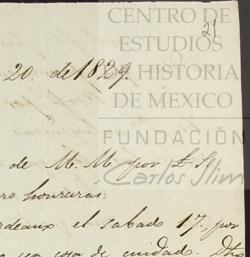 CENTRO DE
ESTUDIOS
DE HISTORIA
DE MEXICO
FUNDACIÓN
Carlos Slim
21
20. de 1829.
de M. M por
honras
deaux el sabado 17, por
cosa de cuidado.